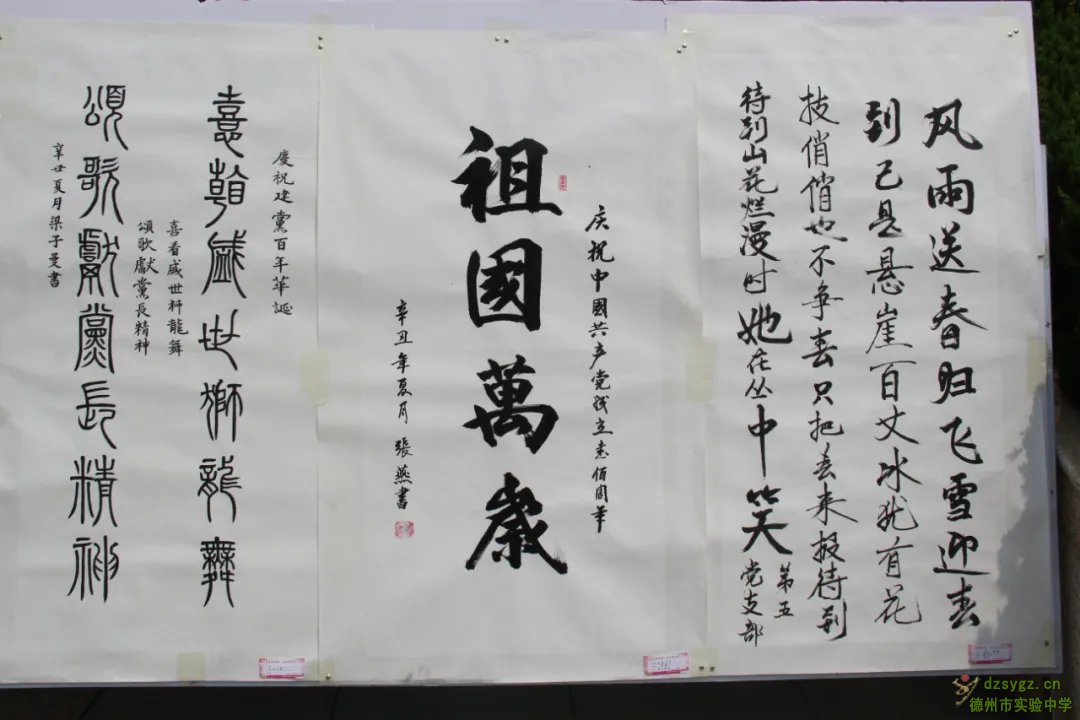 风雨送春归飞雪迎春
到已是悬崖百丈冰犹有花
枝俏俏也不争春只把春来报待到
待到山花烂漫时她在丛中笑
第五
党支部
庆祝中國共产党成立壹佰周年
祖國萬歲
辛丑年夏月 張燕書
慶祝建黨百年華誕
喜看盛世獅龍舞
喜看盛世狮龍舞
頌歌献黨長精神
頌歌獻黨長精神
辛丑夏月梁子曼書
dzsygz.cn
德州市实验中学